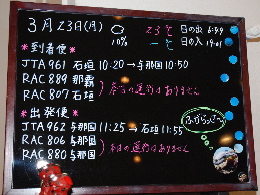 3月23日(月) 23℃ 日の出 6:59
10% -℃ 日の入 19:01
*到着便*
JTA 961 石垣 10:20→与那国 10:50
RAC 889 那覇
RAC 807 石垣 本日の運行はありません
*出発便*
JTA 962 与那国 11:25→石垣 11:55
RAC 806 与那国
RAC 880 与那国 本日の運行はありません